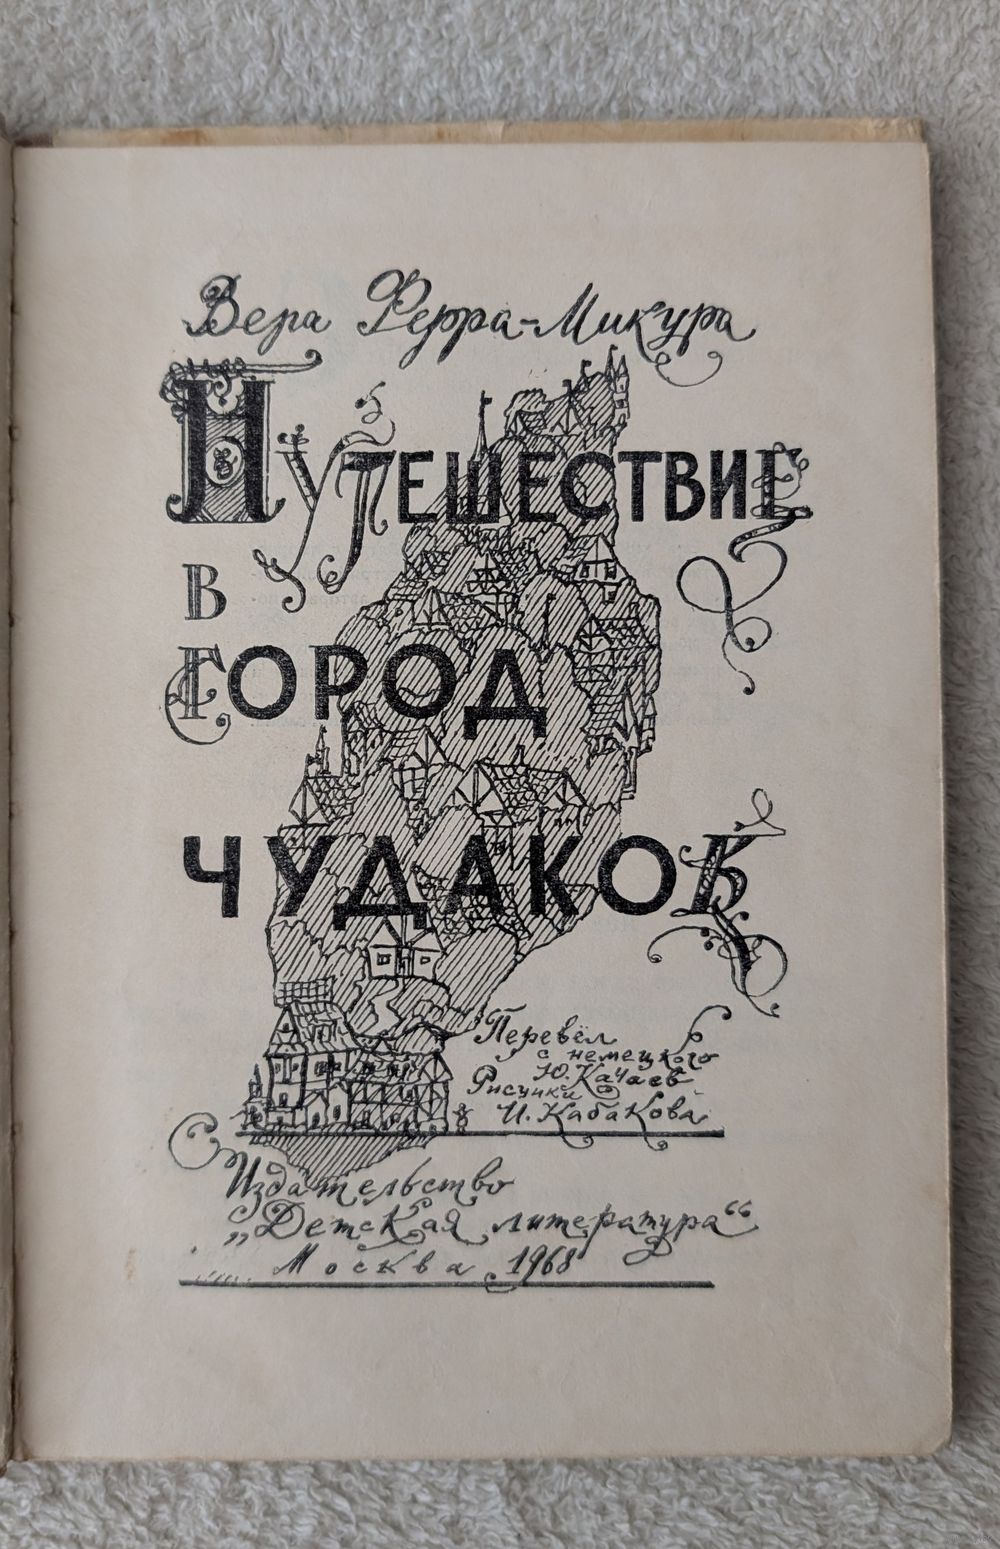 Вера Ферра-Микура
Путешествие
в
город
чудаков
Перевёл
с немецкого
Ю. Качаев
Рисунки
И. Кабакова
Издательство
„Детская литература“
Москва 1968